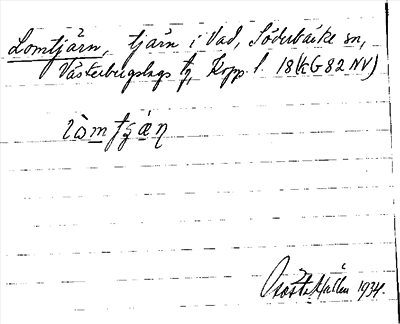 Lomtjärn, tjärn i Vad, Söderbärke sn,
Västerbergslags tg, Kopp. l. 18 (EG 82 NV)
Gösta Hallén 1934.